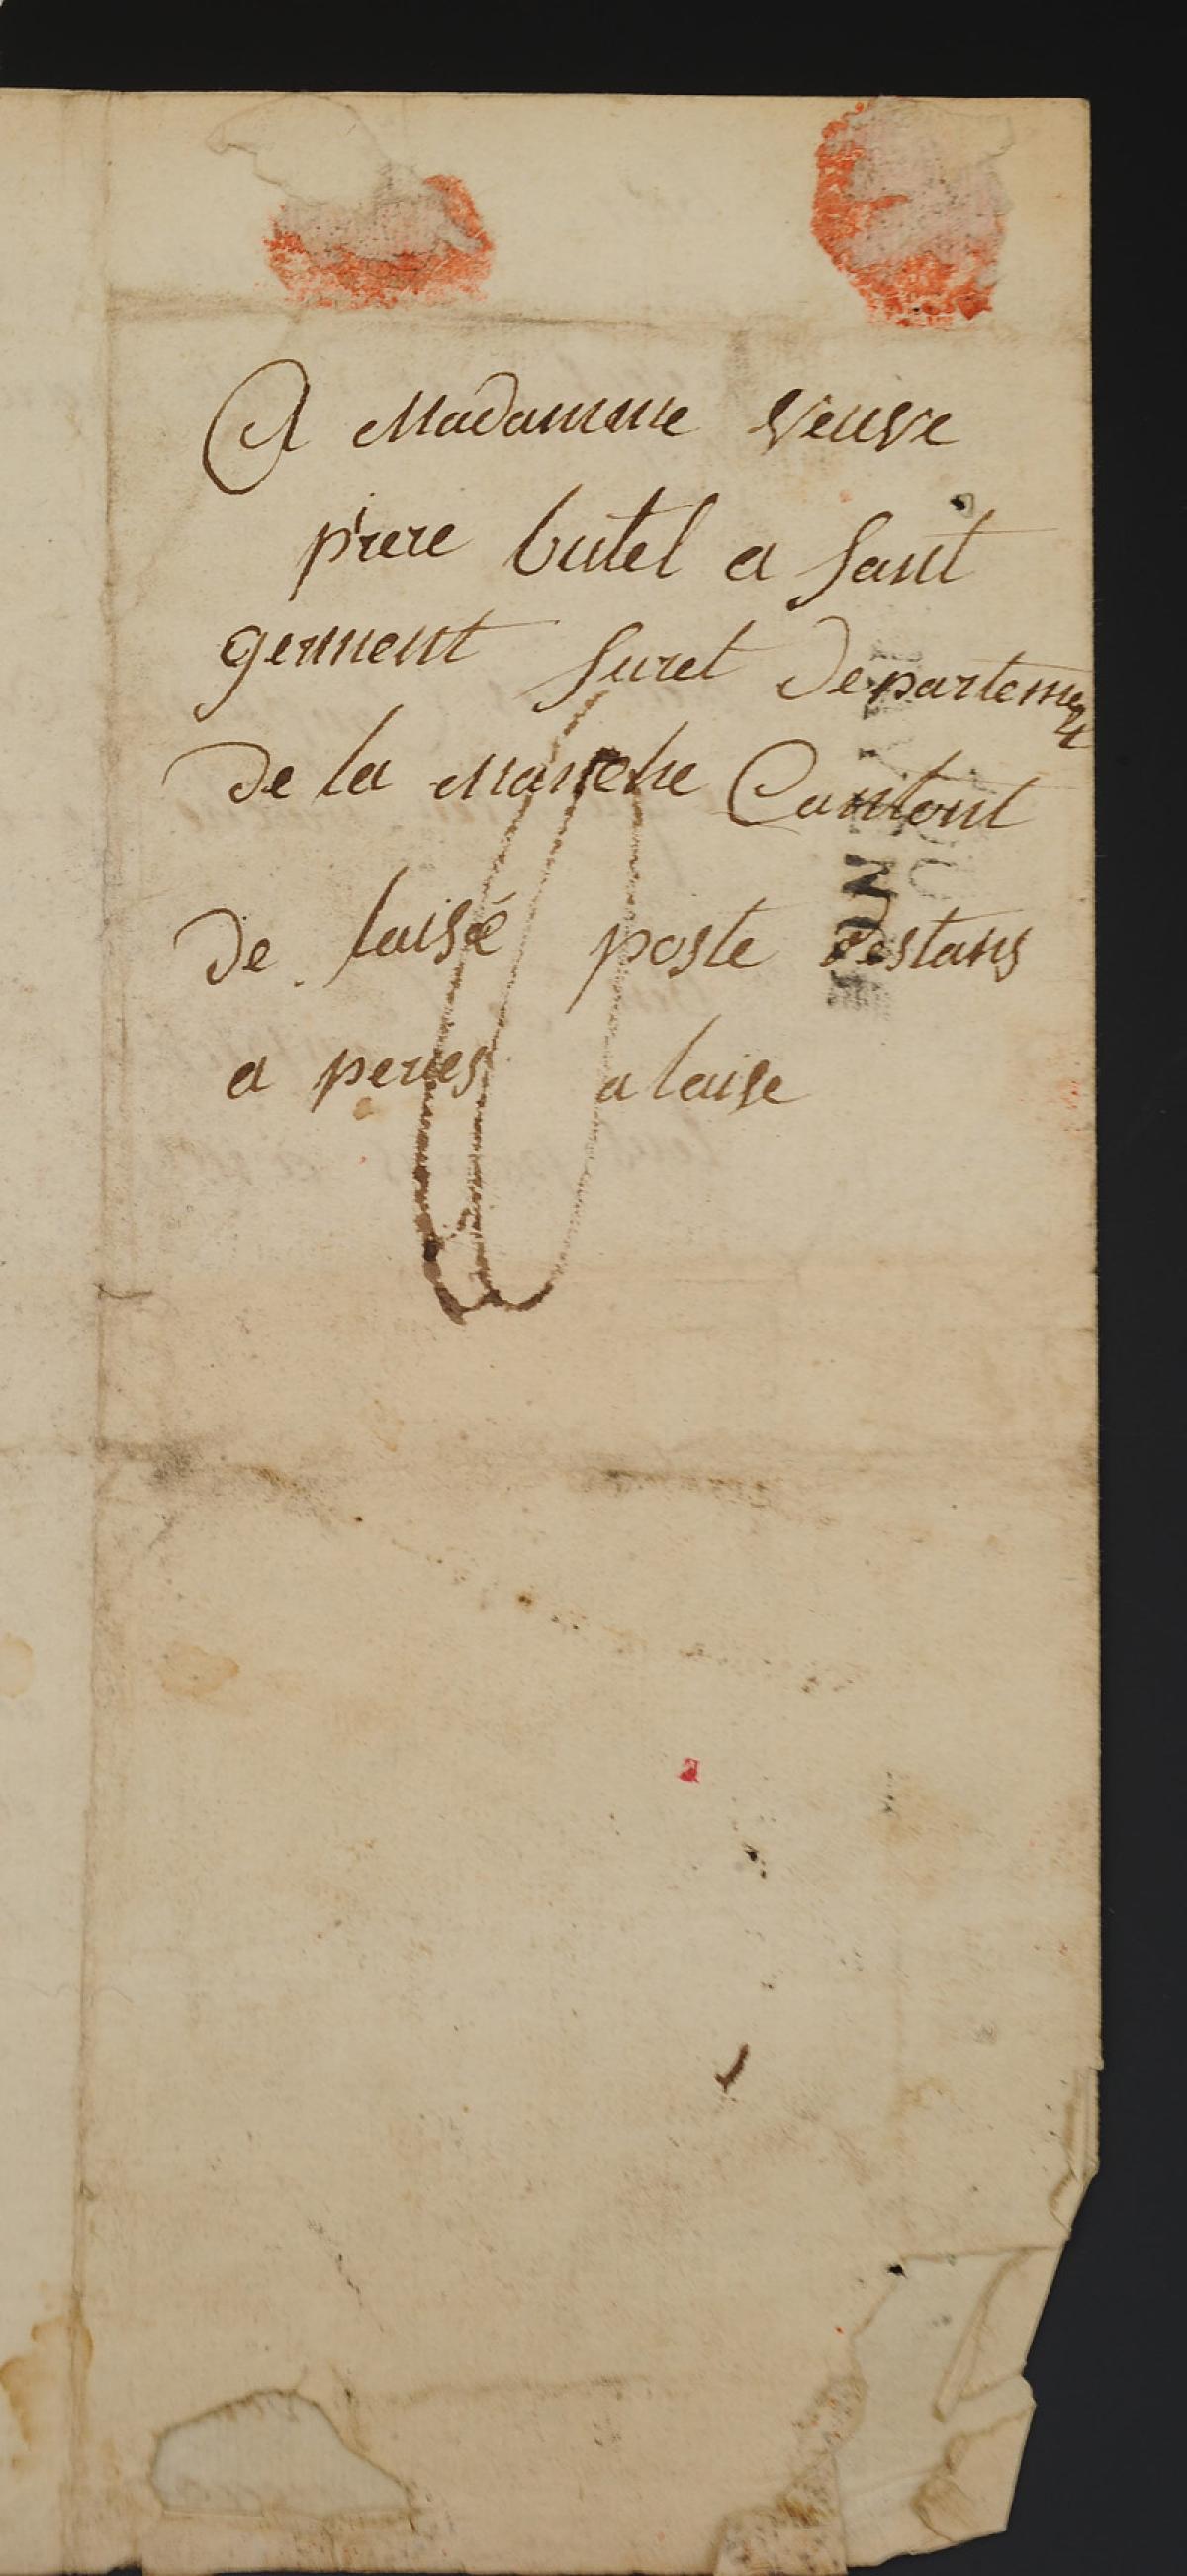 A Madamme veuve
pierre butel a saint
germent suret departement
de la Manche Cantont
de laisé poste restans
a peries a laise